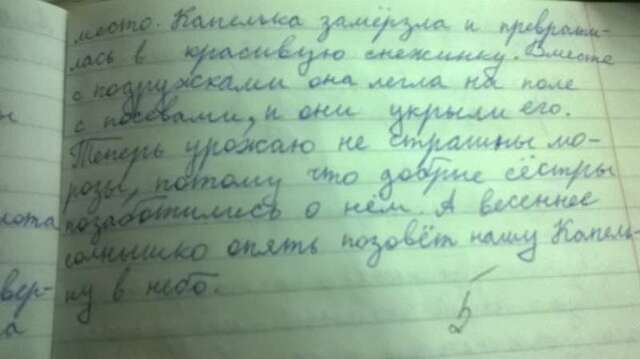 место. Капелька замёрзла и преврати-
лась в красивую снежинку. Вместе
с подружками она легла на поле
с посевами, и они укрыли его.
Теперь урожаю не страшны мо-
розы, потому что добрые сёстры
лота позаботились о нём. А весеннее
солнышко опять позовёт нашу Капель-
вер- ку в небо.
а